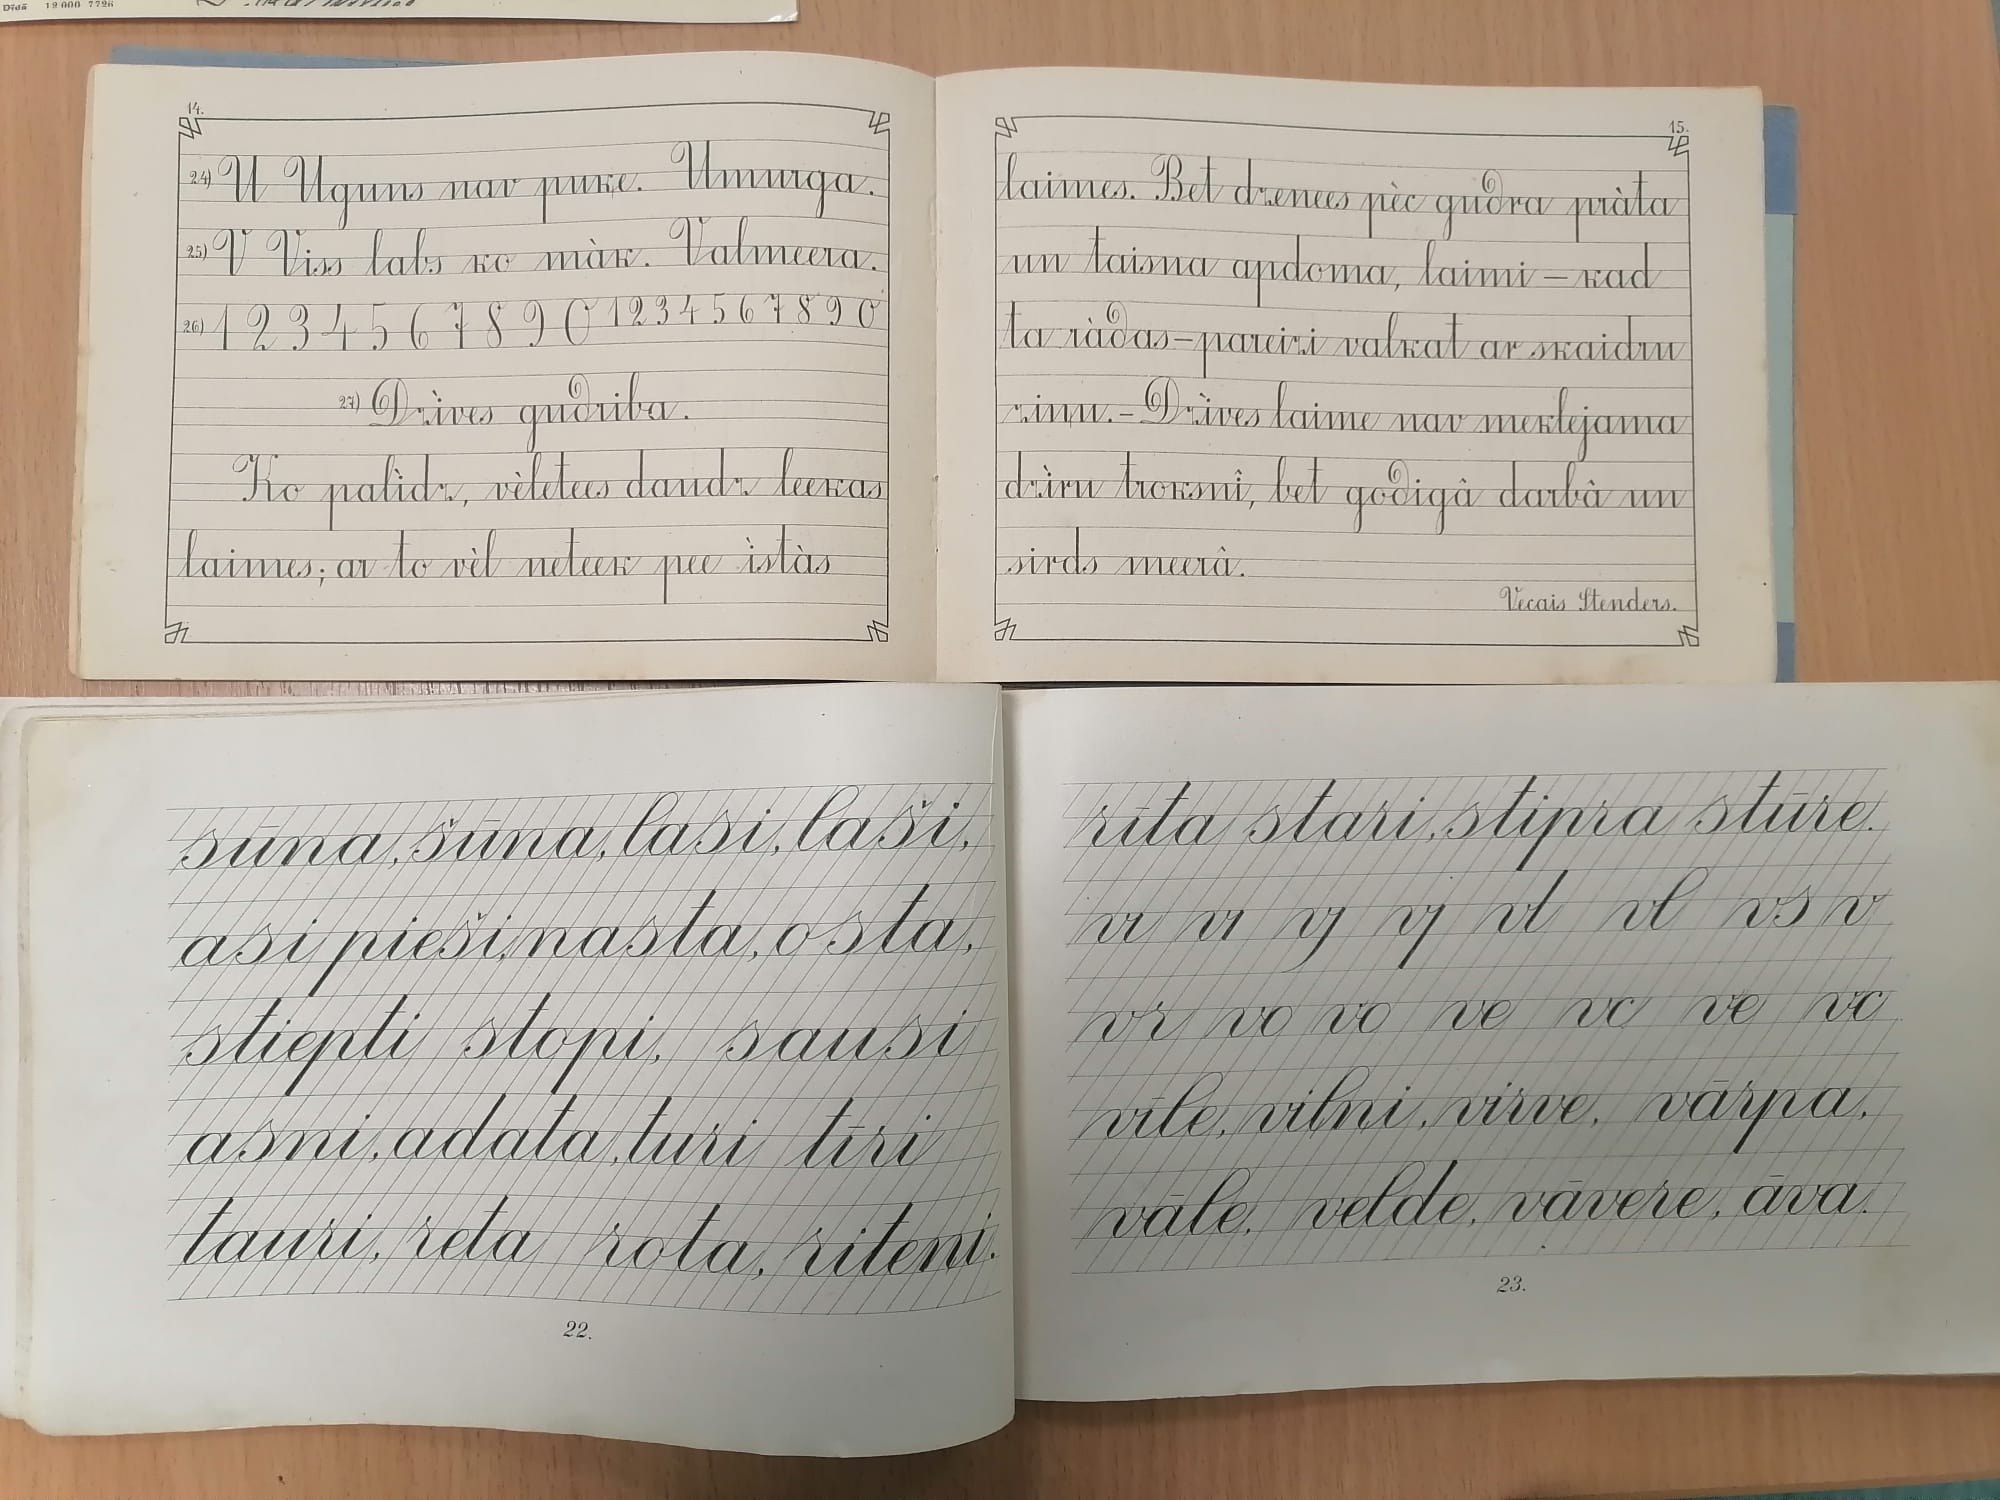 Dīdā 12 000 7726
14.
24) U Uguns nav puķe. Umurga.
25) V Viss labs ko màk. Valmeera.
26) 1 2 3 4 5 6 7 8 9 0 1 2 3 4 5 6 7 8 9 0
27) Dzìves gudriba.
Ko palìdz, vèletees daudz leekas
laimes; ar to vèl neteek pee ìstàs
15.
laimes. Bet dzenees pèc gudra pràta
un taisna apdoma, laimi – kad
ta ràdas – pareizi valkat ar skaidru
zinu. – Dzìves laime nav meklejama
dzìru troksnî, bet godigâ darbâ un
sirds meerâ.
Vecais Stenders.
sūna, šūna, lasi, laši,
asi pieši, nasta, osta,
stiepti stopi, sausi
asni, adata, turi tīri
tauri, reta rota, riteni.
22.
rīta stari, stipra stūre.
vi vi vj vj vt vl vs v
vr vo vo ve vc ve vc
vīle, vilni, virve, vārpa,
vāle, velde, vāvere, āva.
23.